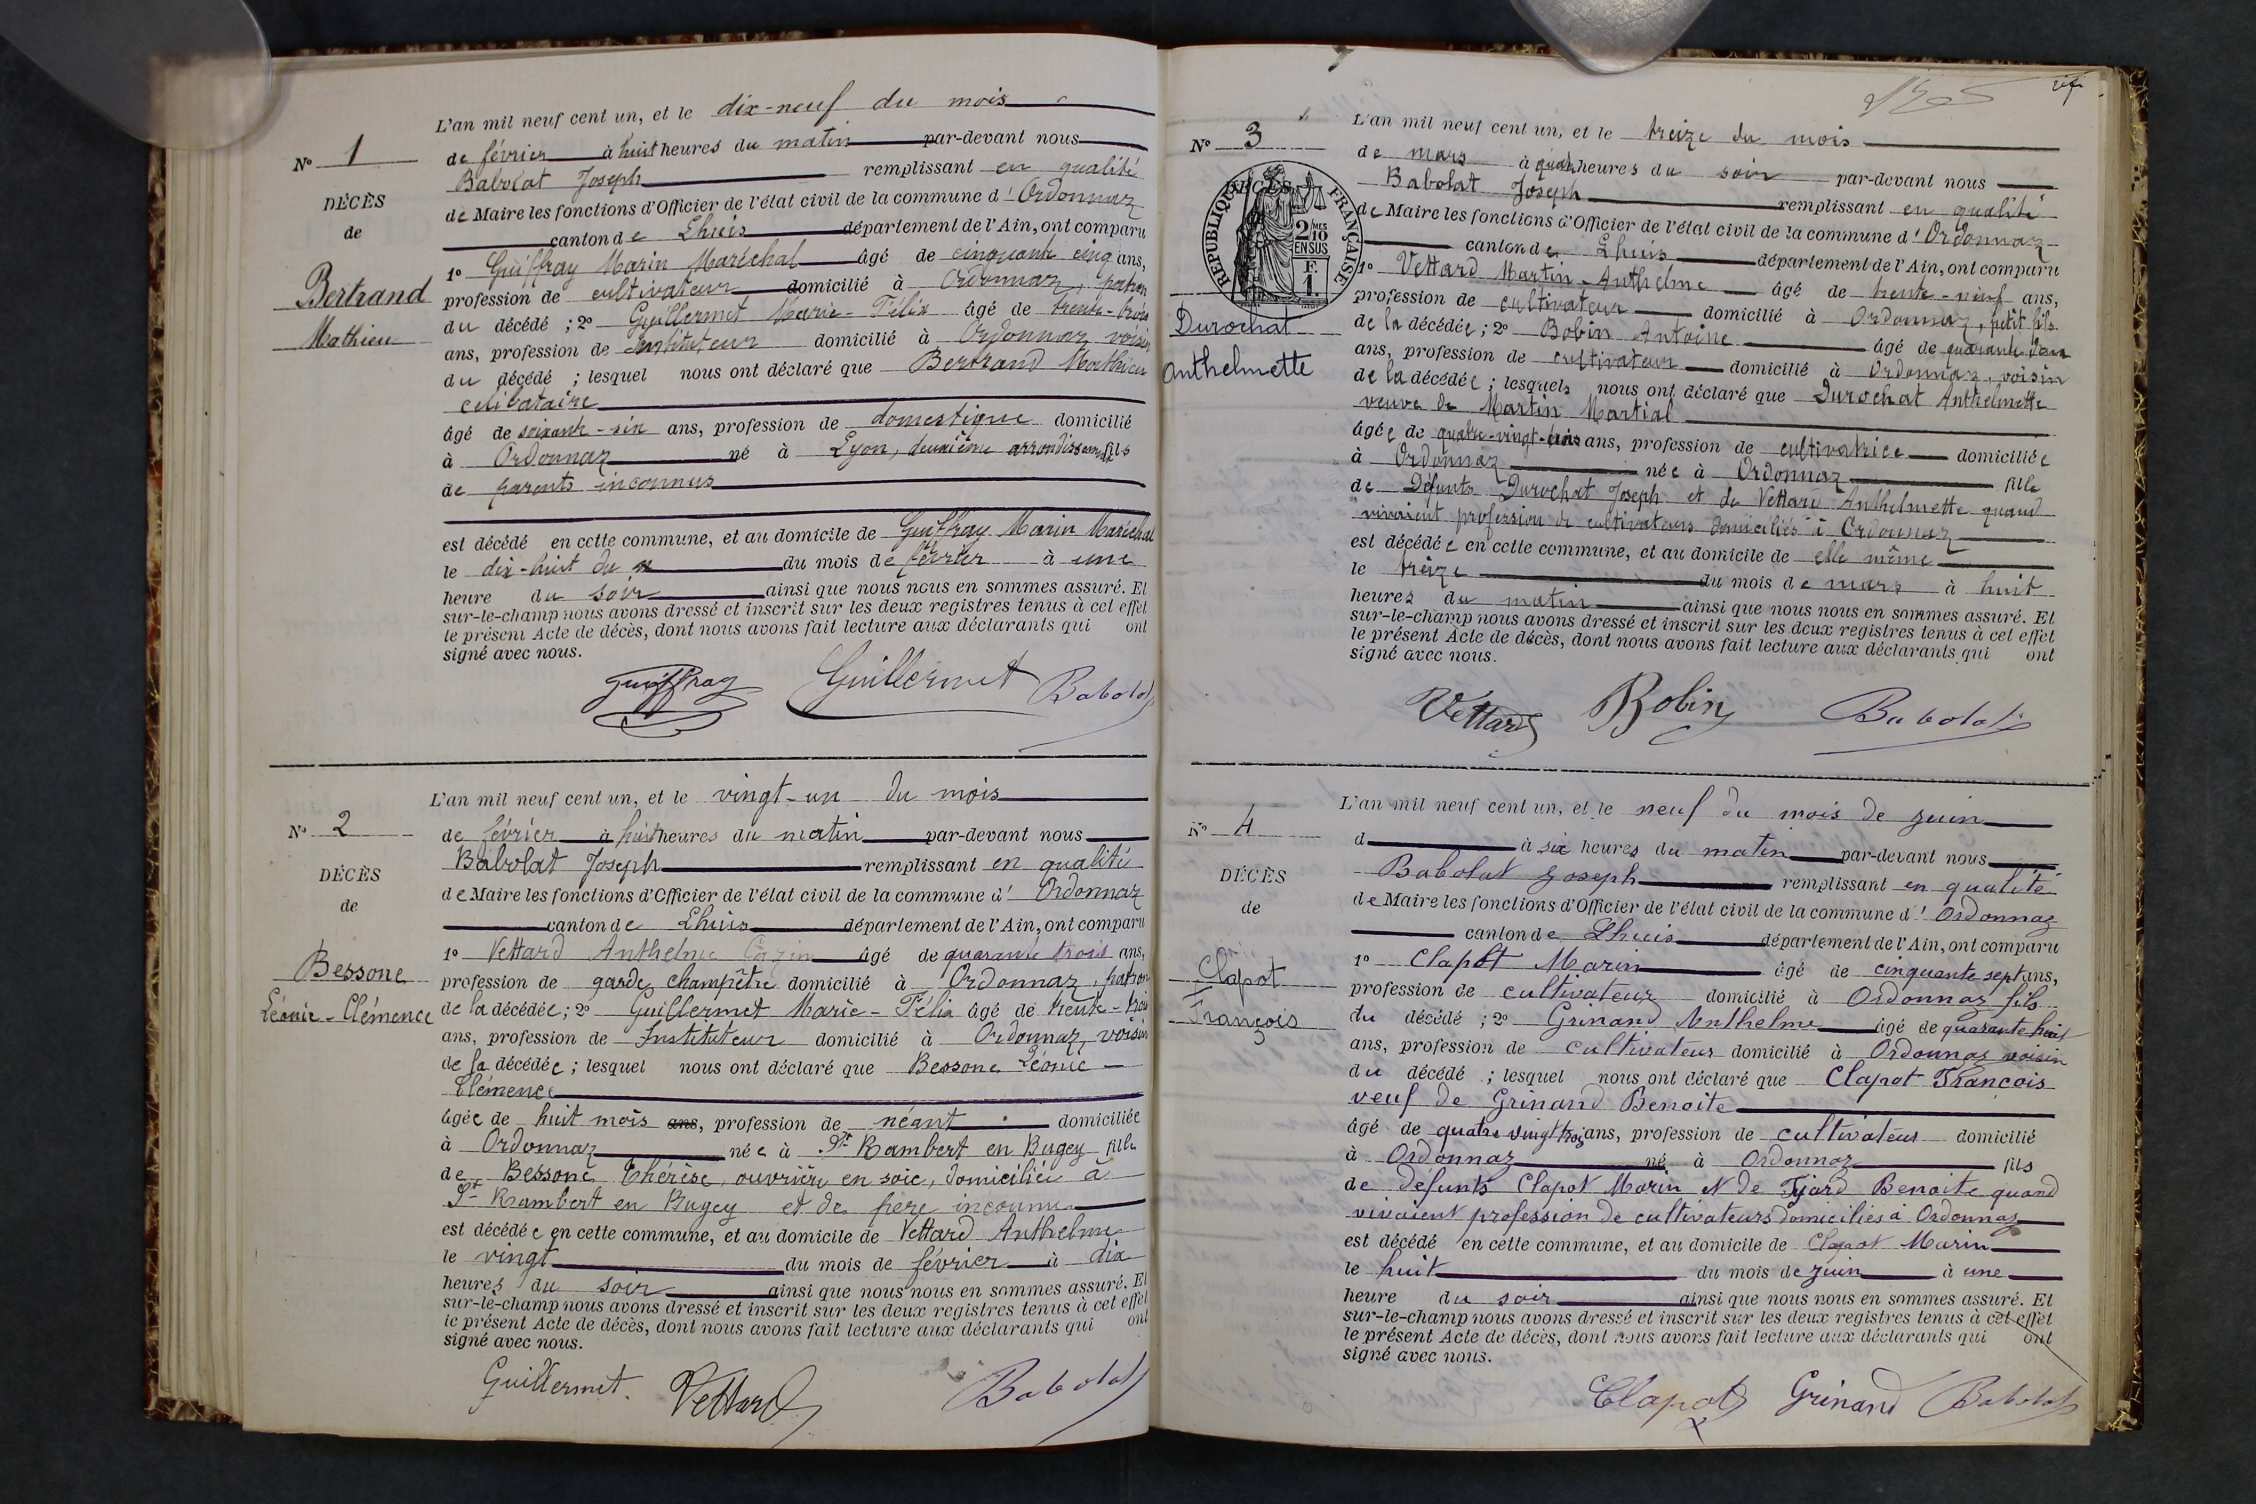 L'an mil neuf cent un, et le dix-neuf du mois
N° 1
de février à huit heures du matin par-devant nous
Babolat Joseph remplissant en qualité
DÉCÈS
de Maire les fonctions d'Officier de l'état civil de la commune d'Ordonnaz
de
canton de Lhuis département de l'Ain, ont comparu
1° Guiffray Marin Maréchal âgé de cinquante cinq ans,
Bertrand
profession de cultivateur domicilié à Ordonnaz, patron
du décédé ; 2° Guillermet Marie-Félix âgé de trente-trois
Mathieu
ans, profession de Instituteur domicilié à Ordonnaz voisin
du décédé ; lesquel nous ont déclaré que Bertrand Mathieu
célibataire
âgé de soixante-six ans, profession de domestique domicilié
à Ordonnaz né à Lyon, deuxième arrondissement fils
de parents inconnus
est décédé en cette commune, et au domicile de Guiffray Marin Maréchal
le dix-huit du mois de février à une
heure du soir ainsi que nous nous en sommes assuré. Et
sur-le-champ nous avons dressé et inscrit sur les deux registres tenus à cet effet
le présent Acte de décès, dont nous avons fait lecture aux déclarants qui ont
signé avec nous.
Guiffray Guillermet Babolat
L'an mil neuf cent un, et le vingt-un du mois
N° 2
de février à huit heures du matin par-devant nous
Babolat Joseph remplissant en qualité
DÉCÈS
de Maire les fonctions d'Officier de l'état civil de la commune d' Ordonnaz
de
canton de Lhuis département de l'Ain, ont comparu
1° Vettard Anthelme âgé de quarante trois ans,
Bessone
profession de garde champêtre domicilié à Ordonnaz, patron
Léonie-Clémence
de la décédée ; 2° Guillermet Marie-Félix âgé de trente-trois
ans, profession de Instituteur domicilié à Ordonnaz, voisin
de la décédée ; lesquel nous ont déclaré que Bessone Léonie
Clémence
âgée de huit mois ans, profession de néant domiciliée
à Ordonnaz née à St Rambert en Bugey fille
de Bessone Thérèse, ouvrière en soie, domiciliée à
St Rambert en Bugey et de père inconnu
est décédée en cette commune, et au domicile de Vettard Anthelme
le vingt du mois de février à dix
heures du soir ainsi que nous nous en sommes assuré. Et
sur-le-champ nous avons dressé et inscrit sur les deux registres tenus à cet effet
le présent Acte de décès, dont nous avons fait lecture aux déclarants qui ont
signé avec nous.
Guillermet. Vettard Babolat
L'an mil neuf cent un, et le treize du mois
N° 3
de mars à quatre heures du soir par-devant nous
Babolat Joseph remplissant en qualité
RÉPUBLIQUE FRANÇAISE
2/10 EN SUS
de Maire les fonctions d'Officier de l'état civil de la commune d'Ordonnaz
canton de Lhuis département de l'Ain, ont comparu
1° Vettard Martin-Anthelme âgé de trente-neuf ans,
profession de cultivateur domicilié à Ordonnaz, petit fils
Durochat
de la décédée ; 2° Bobin Antoine âgé de quarante deux
ans, profession de cultivateur domicilié à Ordonnaz, voisin
Anthelmette
de la décédée ; lesquels nous ont déclaré que Durochat Anthelmette
veuve de Martin Martial
âgée de quatre-vingt-trois ans, profession de cultivatrice domiciliée
à Ordonnaz née à Ordonnaz fille
de Défunts Durochat Joseph et de Vettard Anthelmette quand
vivaient profession de cultivateurs domiciliés à Ordonnaz
est décédée en cette commune, et au domicile de elle même
le treize du mois de mars à huit
heures du matin ainsi que nous nous en sommes assuré. Et
sur-le-champ nous avons dressé et inscrit sur les deux registres tenus à cet effet
le présent Acte de décès, dont nous avons fait lecture aux déclarants qui ont
signé avec nous.
Vettard Bobin Babolat
L'an mil neuf cent un, et le neuf du mois de juin
N° 4
d à six heures du matin par-devant nous
Babolat Joseph remplissant en qualité
DÉCÈS
de Maire les fonctions d'Officier de l'état civil de la commune d'Ordonnaz
de
canton de Lhuis département de l'Ain, ont comparu
1° Clapot Marin âgé de cinquante sept ans,
Clapot
profession de cultivateur domicilié à Ordonnaz fils
François
du décédé ; 2° Grinand Anthelme âgé de quarante huit
ans, profession de cultivateur domicilié à Ordonnaz voisin
du décédé ; lesquel nous ont déclaré que Clapot François
veuf de Grinand Benoite
âgé de quatre vingt trois ans, profession de cultivateur domicilié
à Ordonnaz né à Ordonnaz fils
de défunts Clapot Marin et de Tyard Benoite quand
vivaient profession de cultivateurs domiciliés à Ordonnaz
est décédé en cette commune, et au domicile de Clapot Marin
le huit du mois de juin à une
heure du soir ainsi que nous nous en sommes assuré. Et
sur-le-champ nous avons dressé et inscrit sur les deux registres tenus à cet effet
le présent Acte de décès, dont nous avons fait lecture aux déclarants qui ont
signé avec nous.
Clapot Grinand Babolat